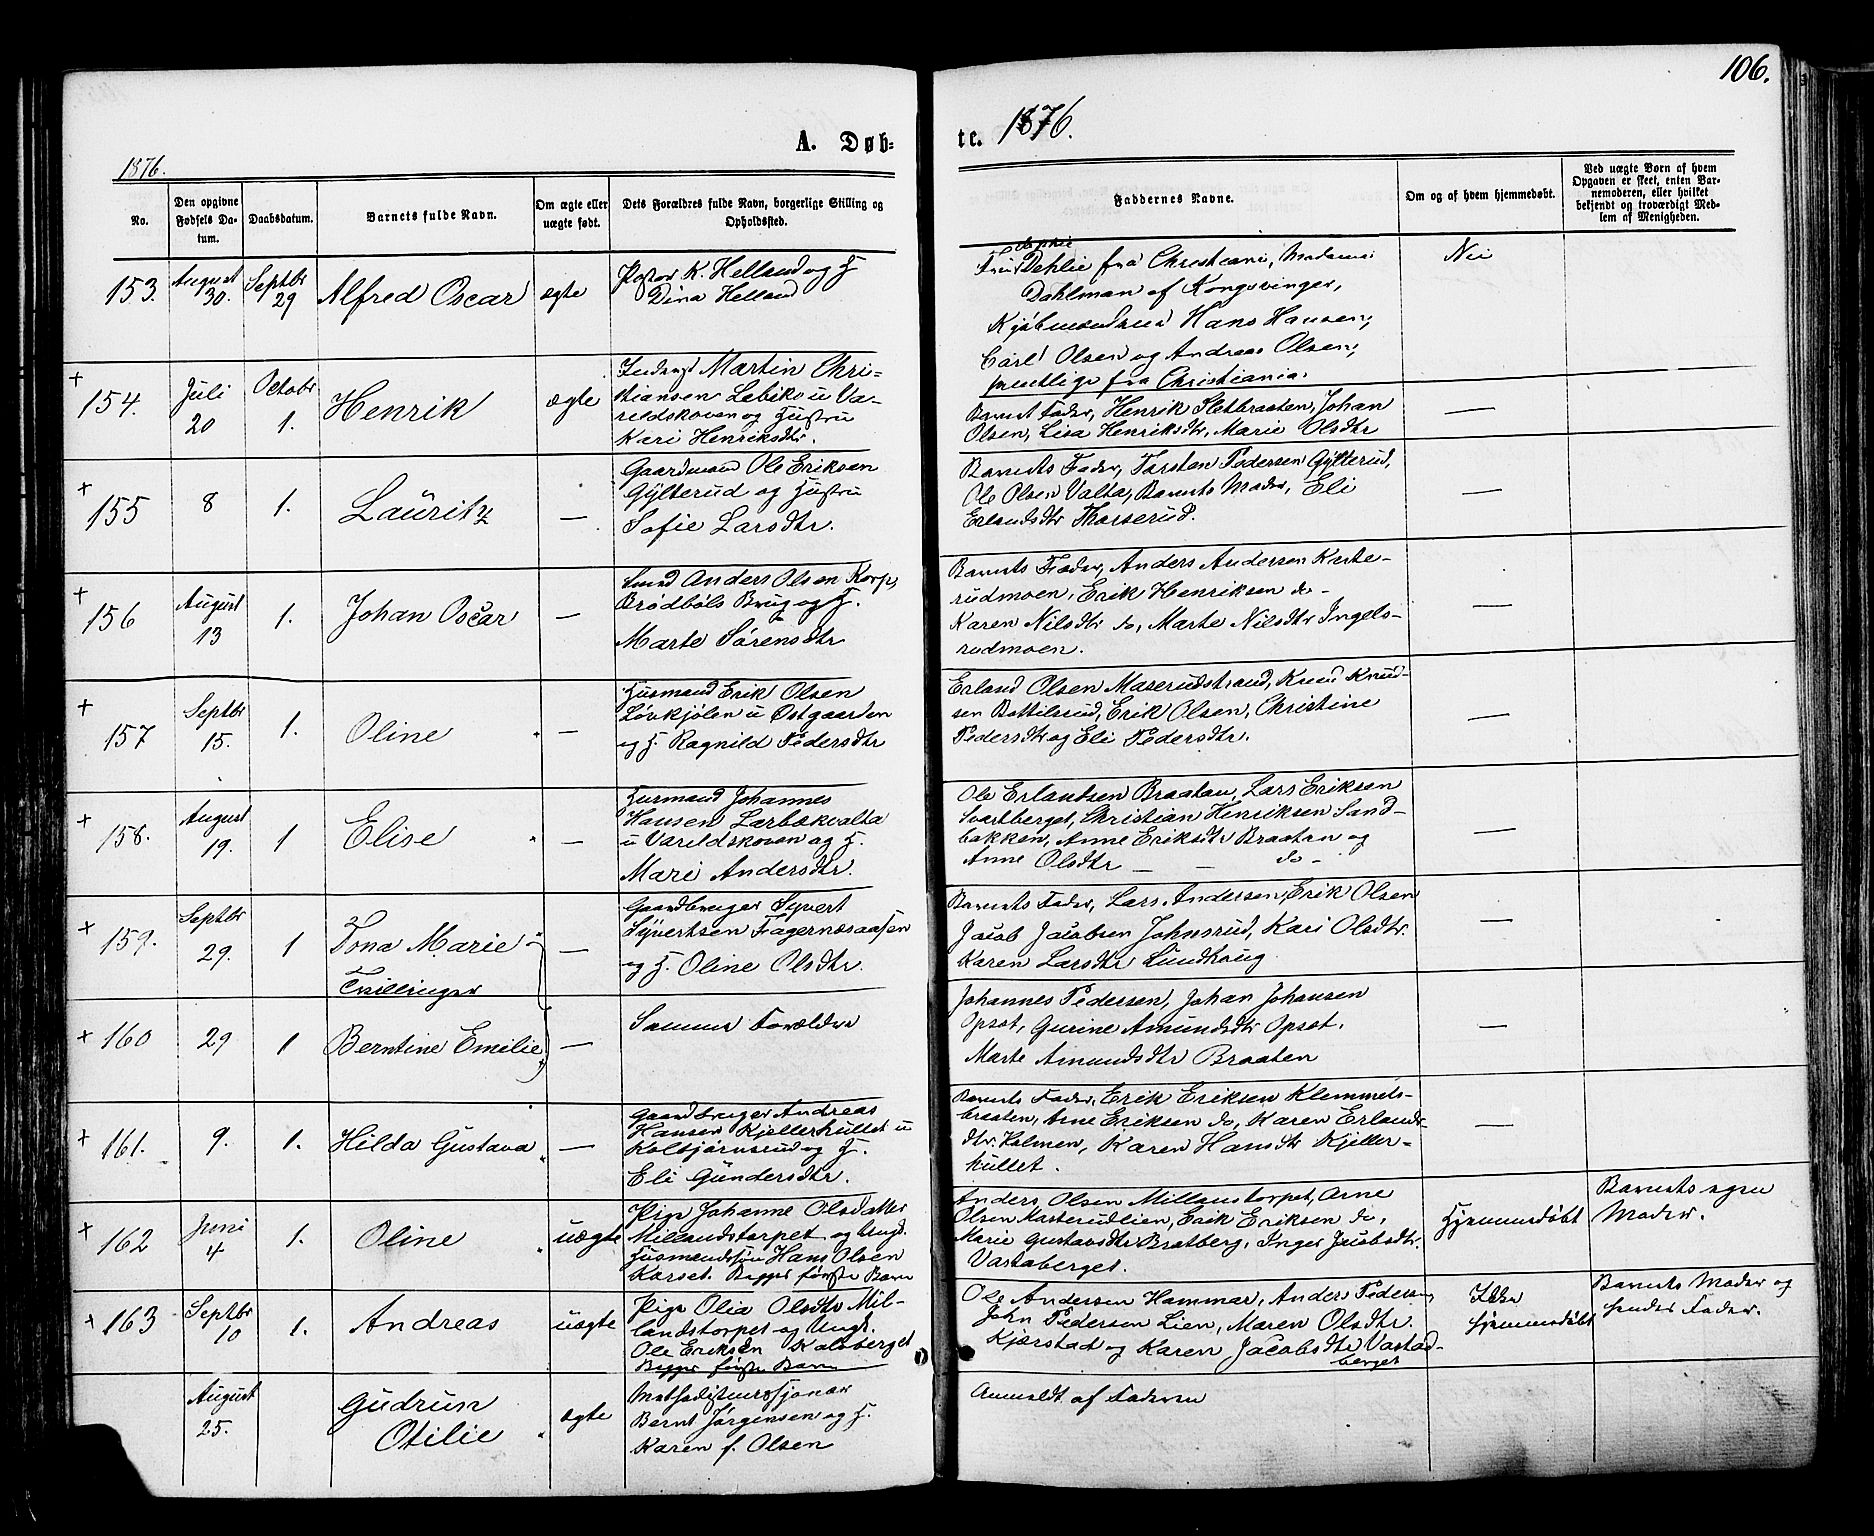 106.
1876.
A. Døb=
te. 1876.
No.
Den opgivne Fødsels Da-tum.
Daabsdatum.
Barnets fulde Navn.
Om ægte eller uægte født.
Dets Forældres fulde Navn, borgerlige Stilling og Opholdssted.
Faddernes Navne.
Om og af hvem hjemmedøbt.
Ved uægte Børn af hvem Opgaven er skeet, enten Bar-nemoderen, eller hvilket bekjendt og troværdigt Med-lem af Menigheden.
153. August 30. Septbr 29 Alfred Oscar ægte
Pastor K. Helland og H
Dina Helland
Fru Dehlie fra Christiania, Madame
Dahlman af Kongsvinger,
Kjøbmændene Hans Hansen,
Carl Olsen og Andreas Olsen,
samtlige fra Christiania.
Nei
+ 154. Juli 20 Octobr 1. Henrik ægte
Martin Chri-
stiansen Lebiko u Va-
rildskoven og Hustru
Kari Henriksdtr.
Barnets Fader, Henrik Sletbraaten, Johan
Olsen, Lisa Henriksdtr, Marie Olsdtr
—
+ 155 8 1. Lauritz —
Gaardmand Ole Eriksen
Gylterud og Hustru
Sofie Larsdtr.
Barnets Fader, Torsten Pedersen Gylterud,
Ole Olsen Valta, Barnets Moder, Eli
Erlandsdtr Thorserud.
—
+ 156 August 13 1. Johan Oscar —
Smed Anders Olsen Korp,
Brødbøls Brug og H.
Marte Sørensdtr
Barnets Fader, Anders Andersen Kirke-
rudmoen, Erik Henriksen do -
Karen Nilsdtr do, Marte Nilsdtr Ingels-
rudmoen.
—
+ 157 Septbr 15. 1. Oline —
Husmand Erik Olsen
Løvkjølen u Østgaarden
og H. Ragnild Pedersdtr
Erland Olsen Maserudstrand, Knud Knud-
sen Bottilsrud, Erik Olsen, Christine
Pedersdtr og Eli Pedersdtr.
—
+ 158. August 19. 1 Elise —
Husmand Johannes
Hansen Larbækvalta
u Varildskoven og H.
Mari Andersdtr.
Ole Erlandsen Braaten, Lars Eriksen
Svartberget, Christian Henriksen Sand-
bakken, Anne Eriksdtr Braaten og
Anne Olsdtr — do -
—
+ 159. Septbr 29. 1 Tona Marie —
Tvillinger
Gaardbruger Syvert
Syvertsen Fagernæsaasen
og H. Oline Olsdtr.
Barnets Fader, Lars Andersen, Erik Olsen
Jacob Jacobsen Johnsrud, Kari Olsdtr.
Karen Larsdtr Lundhaug
—
+ 160 29 1 Berntine Emilie —
Samme Forældre
Johannes Pedersen, Johan Johansen
Opset, Gurine Amundsdtr Opset.
Marte Amundsdtr Braaten
—
+ 161. 9. 1. Hilda Gustava —
Gaardbruger Andreas
Hansen Kjellerhullet u
Kolbjørnsrud og H.
Eli Gundersdtr.
Barnets Fader, Erik Eriksen Klemmets-
braaten, Arne Eriksen do, Karen Erlands-
dtr. Holmen, Karen Hansdtr Kjeller-
hullet.
—
+ 162 Juni 4 1. Oline uægte
Pige Johanne Olsdatter
Millandstorpet og Ungk.
Husmandssøn Hans Olsen
Karset. Begges første Barn
Anders Olsen Millandstorpet, Arne
Olsen Masterudlien, Erik Eriksen do,
Marie Gustavsdtr Bratberg, Inger Jacobsdtr.
Vastaberget.
Hjemmedøbt
Barnets egen
Moder.
+ 163 Septbr 10 1. Andreas uægte
Pige Olia Olsdtr Mil-
landstorpet og Ungk.
Ole Eriksen Kalsberget
Begges første Barn
Ole Andersen Hammar, Anders Pedersen
John Pedersen Lien, Maren Olsdtr.
Kjærstad og Karen Jacobsdtr Vastad-
berget
Ikke
hjemmedøbt
Barnets Moder og
Fader.
August 25. Gudrun
Otilie ægte
Methodistmissionær
Bernt Jørgensen og H.
Karen f. Olsen
Anmeldt af Faderen